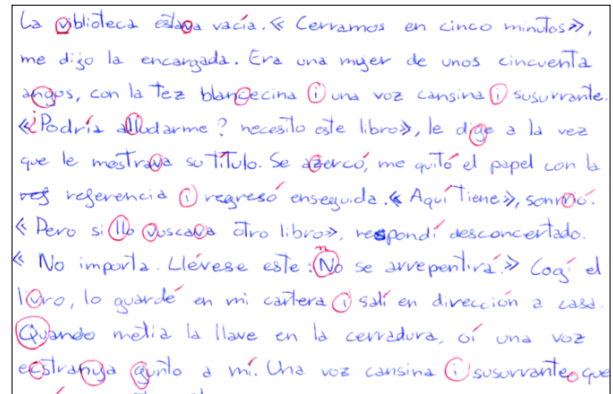 La viblioteca estava vacía. « Cerramos en cinco minutos»,
me dijo la encargada. Era una mujer de unos cincuenta
angos, con la tez blancecina i una voz cansina i susurrante.
«¿Podría alludarme? necesito este libro», le dige a la vez
que le mostrava su título. Se azercó, me quitó el papel con la
referencia i regresó enseguida. « Aquí tiene», sonrrió.
« Pero si llo vuscava otro libro», respondí desconcertado.
« No importa. Llévese este: No se arrepentirá.» Cogí el
livro, lo guardé en mi cartera i salí en dirección a casa.
Quando metía la llave en la cerradura, oí una voz
ecstranya gunto a mí. Una voz cansina i susurrante, que